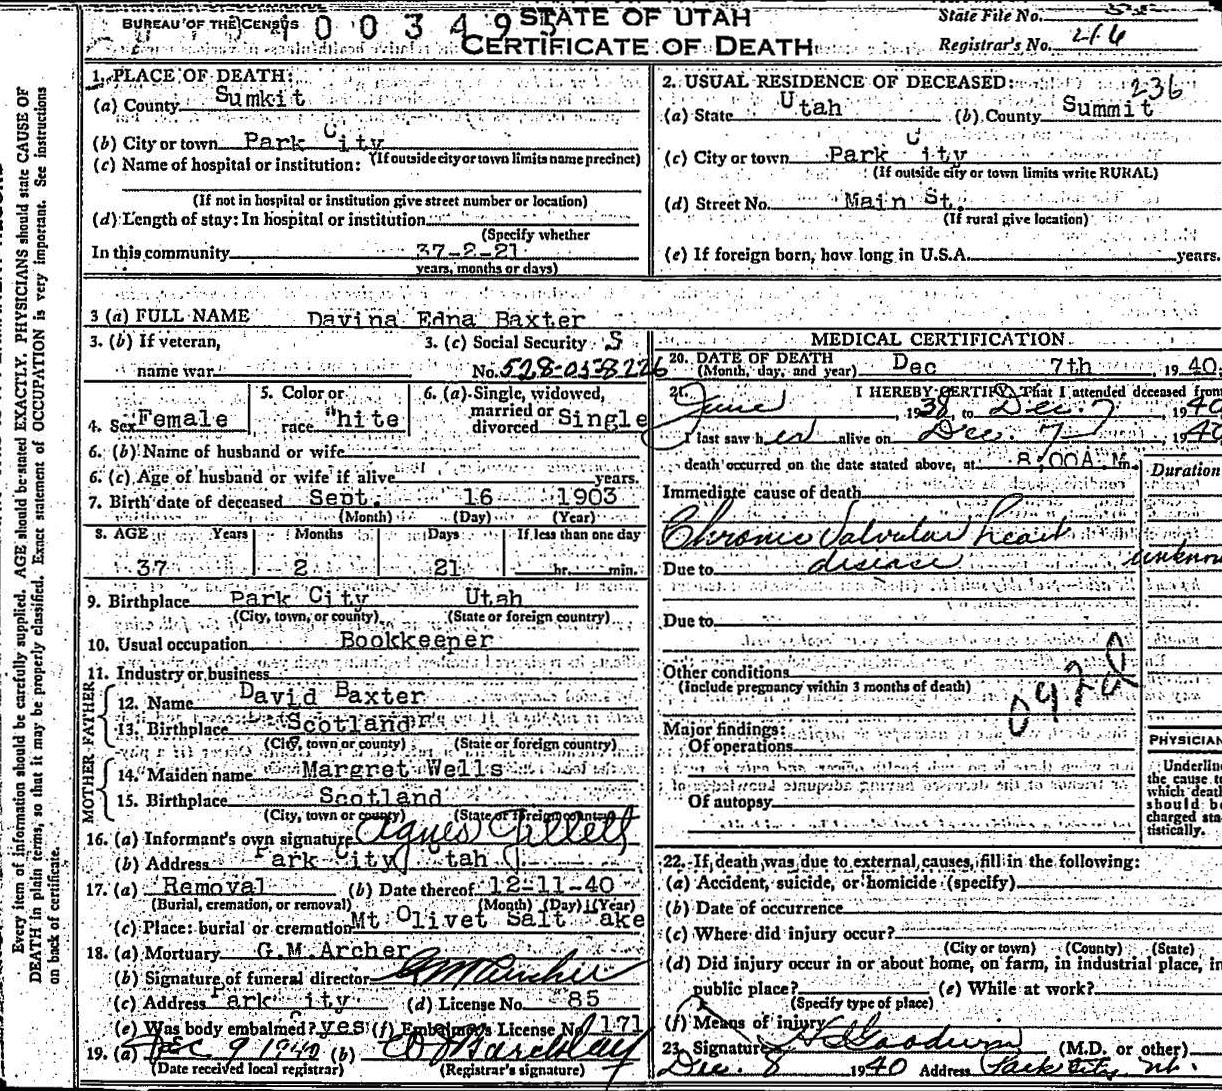 BUREAU OF THE CENSUS
0 0 3 4 9
STATE OF UTAH
CERTIFICATE OF DEATH
State File No.
Registrar's No. 216
Every item of information should be carefully supplied. AGE should be stated EXACTLY. PHYSICIANS should state CAUSE OF
DEATH in plain terms, so that it may be properly classified. Exact statement of OCCUPATION is very important. See instructions
on back of certificate.
1. PLACE OF DEATH:
(a) County Sumkit
(b) City or town Park City
(If outside city or town limits name precinct)
(c) Name of hospital or institution:
(If not in hospital or institution give street number or location)
(d) Length of stay: In hospital or institution
(Specify whether
In this community 37-2-21
years, months or days)
2. USUAL RESIDENCE OF DECEASED: 236
(a) State Utah (b) County Summit
(c) City or town Park City
(If outside city or town limits write RURAL)
(d) Street No. Main St.
(If rural give location)
(e) If foreign born, how long in U.S.A. years.
3 (a) FULL NAME Davina Edna Baxter
3. (b) If veteran, 3. (c) Social Security S
name war No. 528-05-8226
4. Sex Female
5. Color or
race hite
6. (a) Single, widowed,
married or
divorced Single
6. (b) Name of husband or wife
6. (c) Age of husband or wife if alive years.
7. Birth date of deceased Sept. 16 1903
(Month) (Day) (Year)
8. AGE Years Months Days If less than one day
37 2 21 hr. min.
9. Birthplace Park City Utah
(City, town, or county) (State or foreign country)
10. Usual occupation Bookkeeper
11. Industry or business
FATHER
12. Name David Baxter
13. Birthplace Scotland
(City, town or county) (State or foreign country)
MOTHER
14. Maiden name Margret Wells
15. Birthplace Scotland
(City, town or county) (State or foreign country)
16. (a) Informant's own signature Agnes Gillett
(b) Address Park City tah
17. (a) Removal (b) Date thereof 12-11-40
(Burial, cremation, or removal) (Month) (Day) (Year)
(c) Place: burial or cremation Mt Olivet Salt ake
18. (a) Mortuary G.M.Archer
(b) Signature of funeral director GM Archer
(c) Address Park ity (d) License No. 85
(e) Was body embalmed? yes (f) Embalmer's License No. 171
19. (a) DEC 9 1940 (b) Barclay
(Date received local registrar) (Registrar's signature)
MEDICAL CERTIFICATION
20. DATE OF DEATH
(Month, day, and year) Dec 7th, 1940;
21. I HEREBY CERTIFY, That I attended deceased from
June, 1938, to Dec. 7, 1940
I last saw her alive on Dec. 7, 1940
death occurred on the date stated above, at 8:00A.M m.
Duration
Immediate cause of death
Chronic Valvular heart
Due to disease unknown
Due to
Other conditions
(Include pregnancy within 3 months of death)
092
Major findings:
Of operations
Of autopsy
PHYSICIAN
Underline
the cause to
which death
should be
charged sta-
tistically.
22. If death was due to external causes, fill in the following:
(a) Accident, suicide, or homicide (specify)
(b) Date of occurrence
(c) Where did injury occur?
(City or town) (County) (State)
(d) Did injury occur in or about home, on farm, in industrial place, in
public place? (e) While at work?
(Specify type of place)
(f) Means of injury
23. Signature Goodwin (M.D. or other)
Dec. 8 1940 Address Park City, Ut.